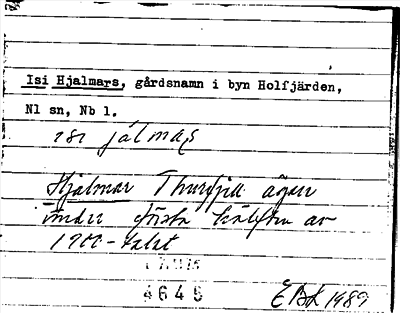 Isi Hjalmars, gårdsnamn i byn Holfjärden,
Nl sn, Nb l.
isi jálmas
Hjalmar Thurfjell ägare
under första hälften av
1900-talet
4645
EBK 1989